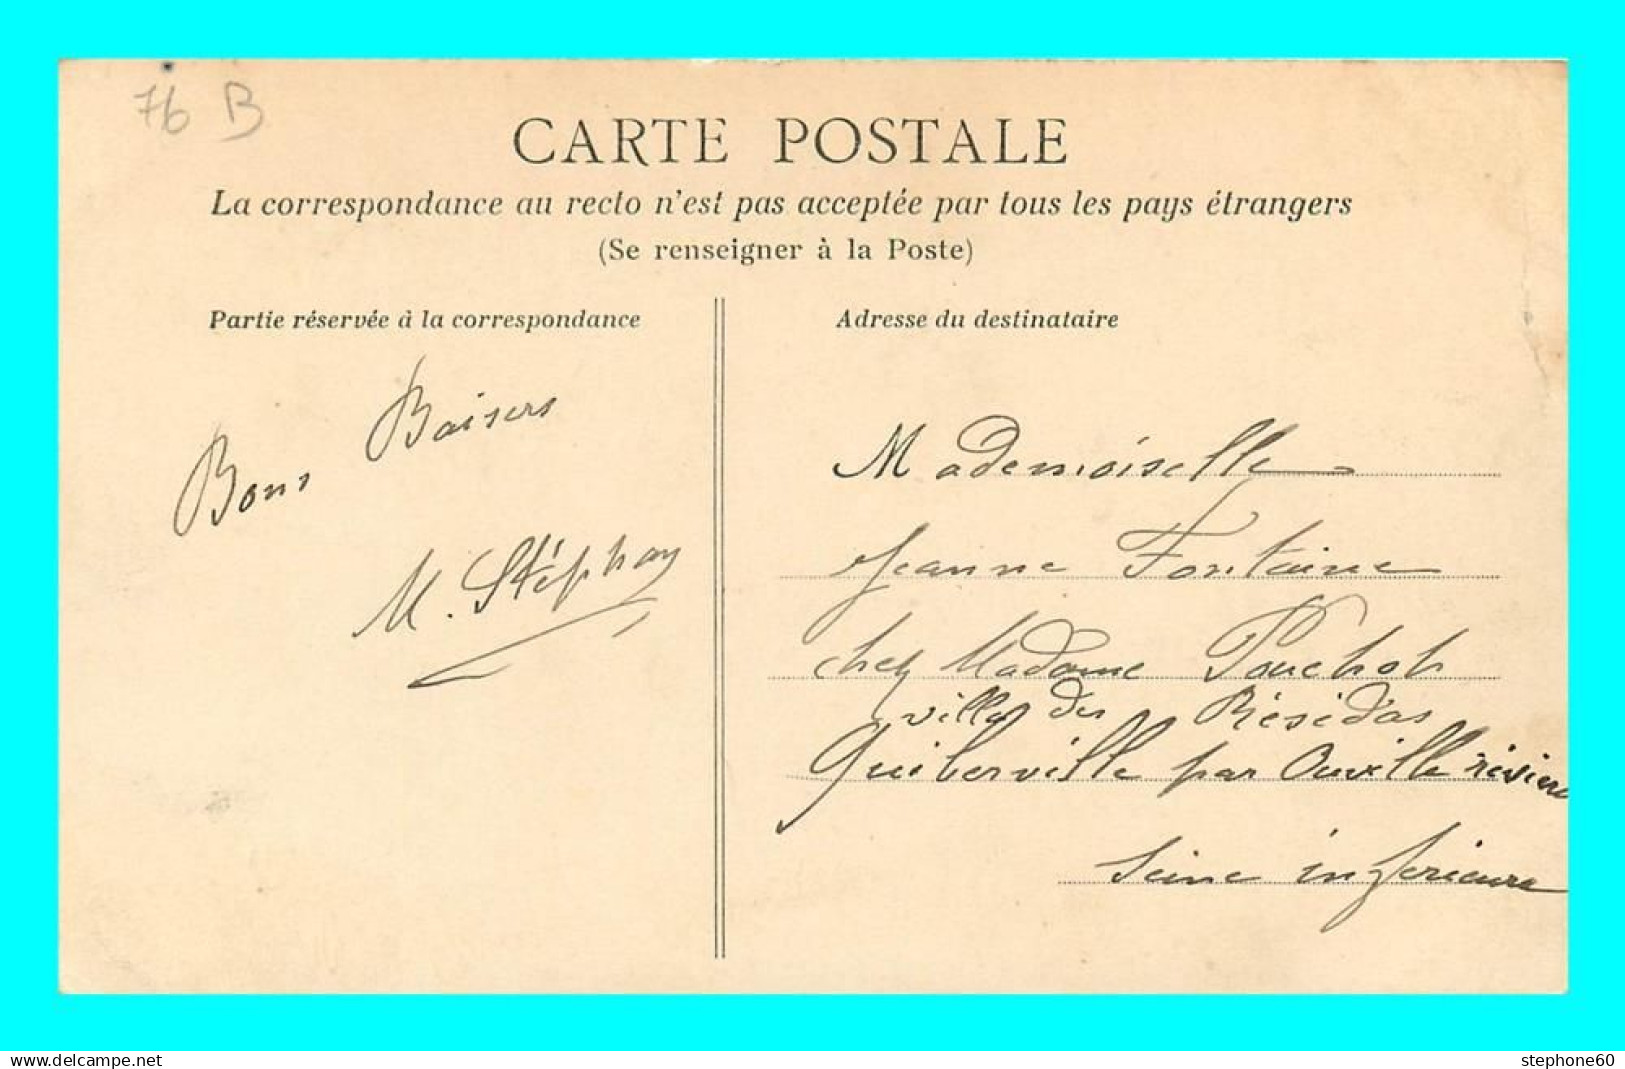 76 B
CARTE POSTALE
La correspondance au recto n'est pas acceptée par tous les pays étrangers
(Se renseigner à la Poste)
Partie réservée à la correspondance
Adresse du destinataire
Bons Baisers
M. Stéphay
Mademoiselle
Jeanne Fontaine
chez Madame
villa des Résédas
Quiberville par Ouville rivière
Seine inférieure
www.delcampe.net
stephone60